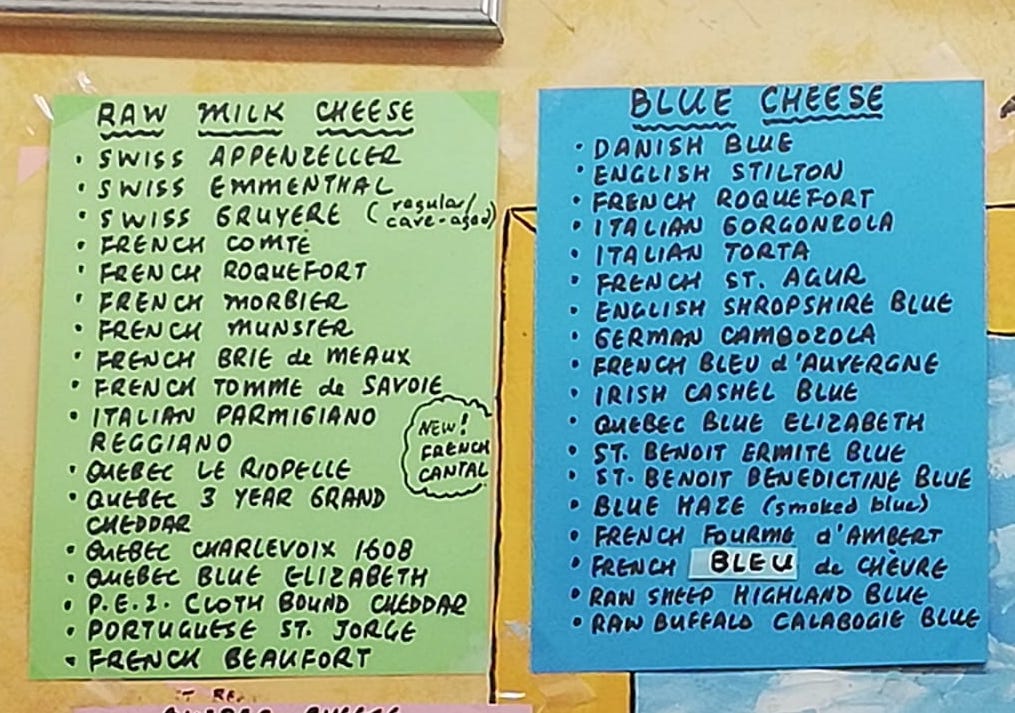 RAW MILK CHEESE
• SWISS APPENZELLER
• SWISS EMMENTHAL
• SWISS GRUYERE (regular/
cave-aged)
• FRENCH COMTE
• FRENCH ROQUEFORT
• FRENCH MORBIER
• FRENCH MUNSTER
• FRENCH BRIE de MEAUX
• FRENCH TOMME de SAVOIE
• ITALIAN PARMIGIANO
REGGIANO
• QUEBEC LE RIOPELLE
• QUEBEC 3 YEAR GRAND
CHEDDAR
• QUEBEC CHARLEVOIX 1608
• QUEBEC BLUE ELIZABETH
• P.E.I. CLOTH BOUND CHEDDAR
• PORTUGUESE ST. JORGE
• FRENCH BEAUFORT
NEW!
FRENCH
CANTAL
BLUE CHEESE
• DANISH BLUE
• ENGLISH STILTON
• FRENCH ROQUEFORT
• ITALIAN GORGONZOLA
• ITALIAN TORTA
• FRENCH ST. AGUR
• ENGLISH SHROPSHIRE BLUE
• GERMAN CAMBOZOLA
• FRENCH BLEU d'AUVERGNE
• IRISH CASHEL BLUE
• QUEBEC BLUE ELIZABETH
• ST. BENOIT ERMITE BLUE
• ST. BENOIT BENEDICTINE BLUE
• BLUE HAZE (smoked blue)
• FRENCH FOURME d'AMBERT
• FRENCH BLEU de CHÈVRE
• RAW SHEEP HIGHLAND BLUE
• RAW BUFFALO CALABOGIE BLUE